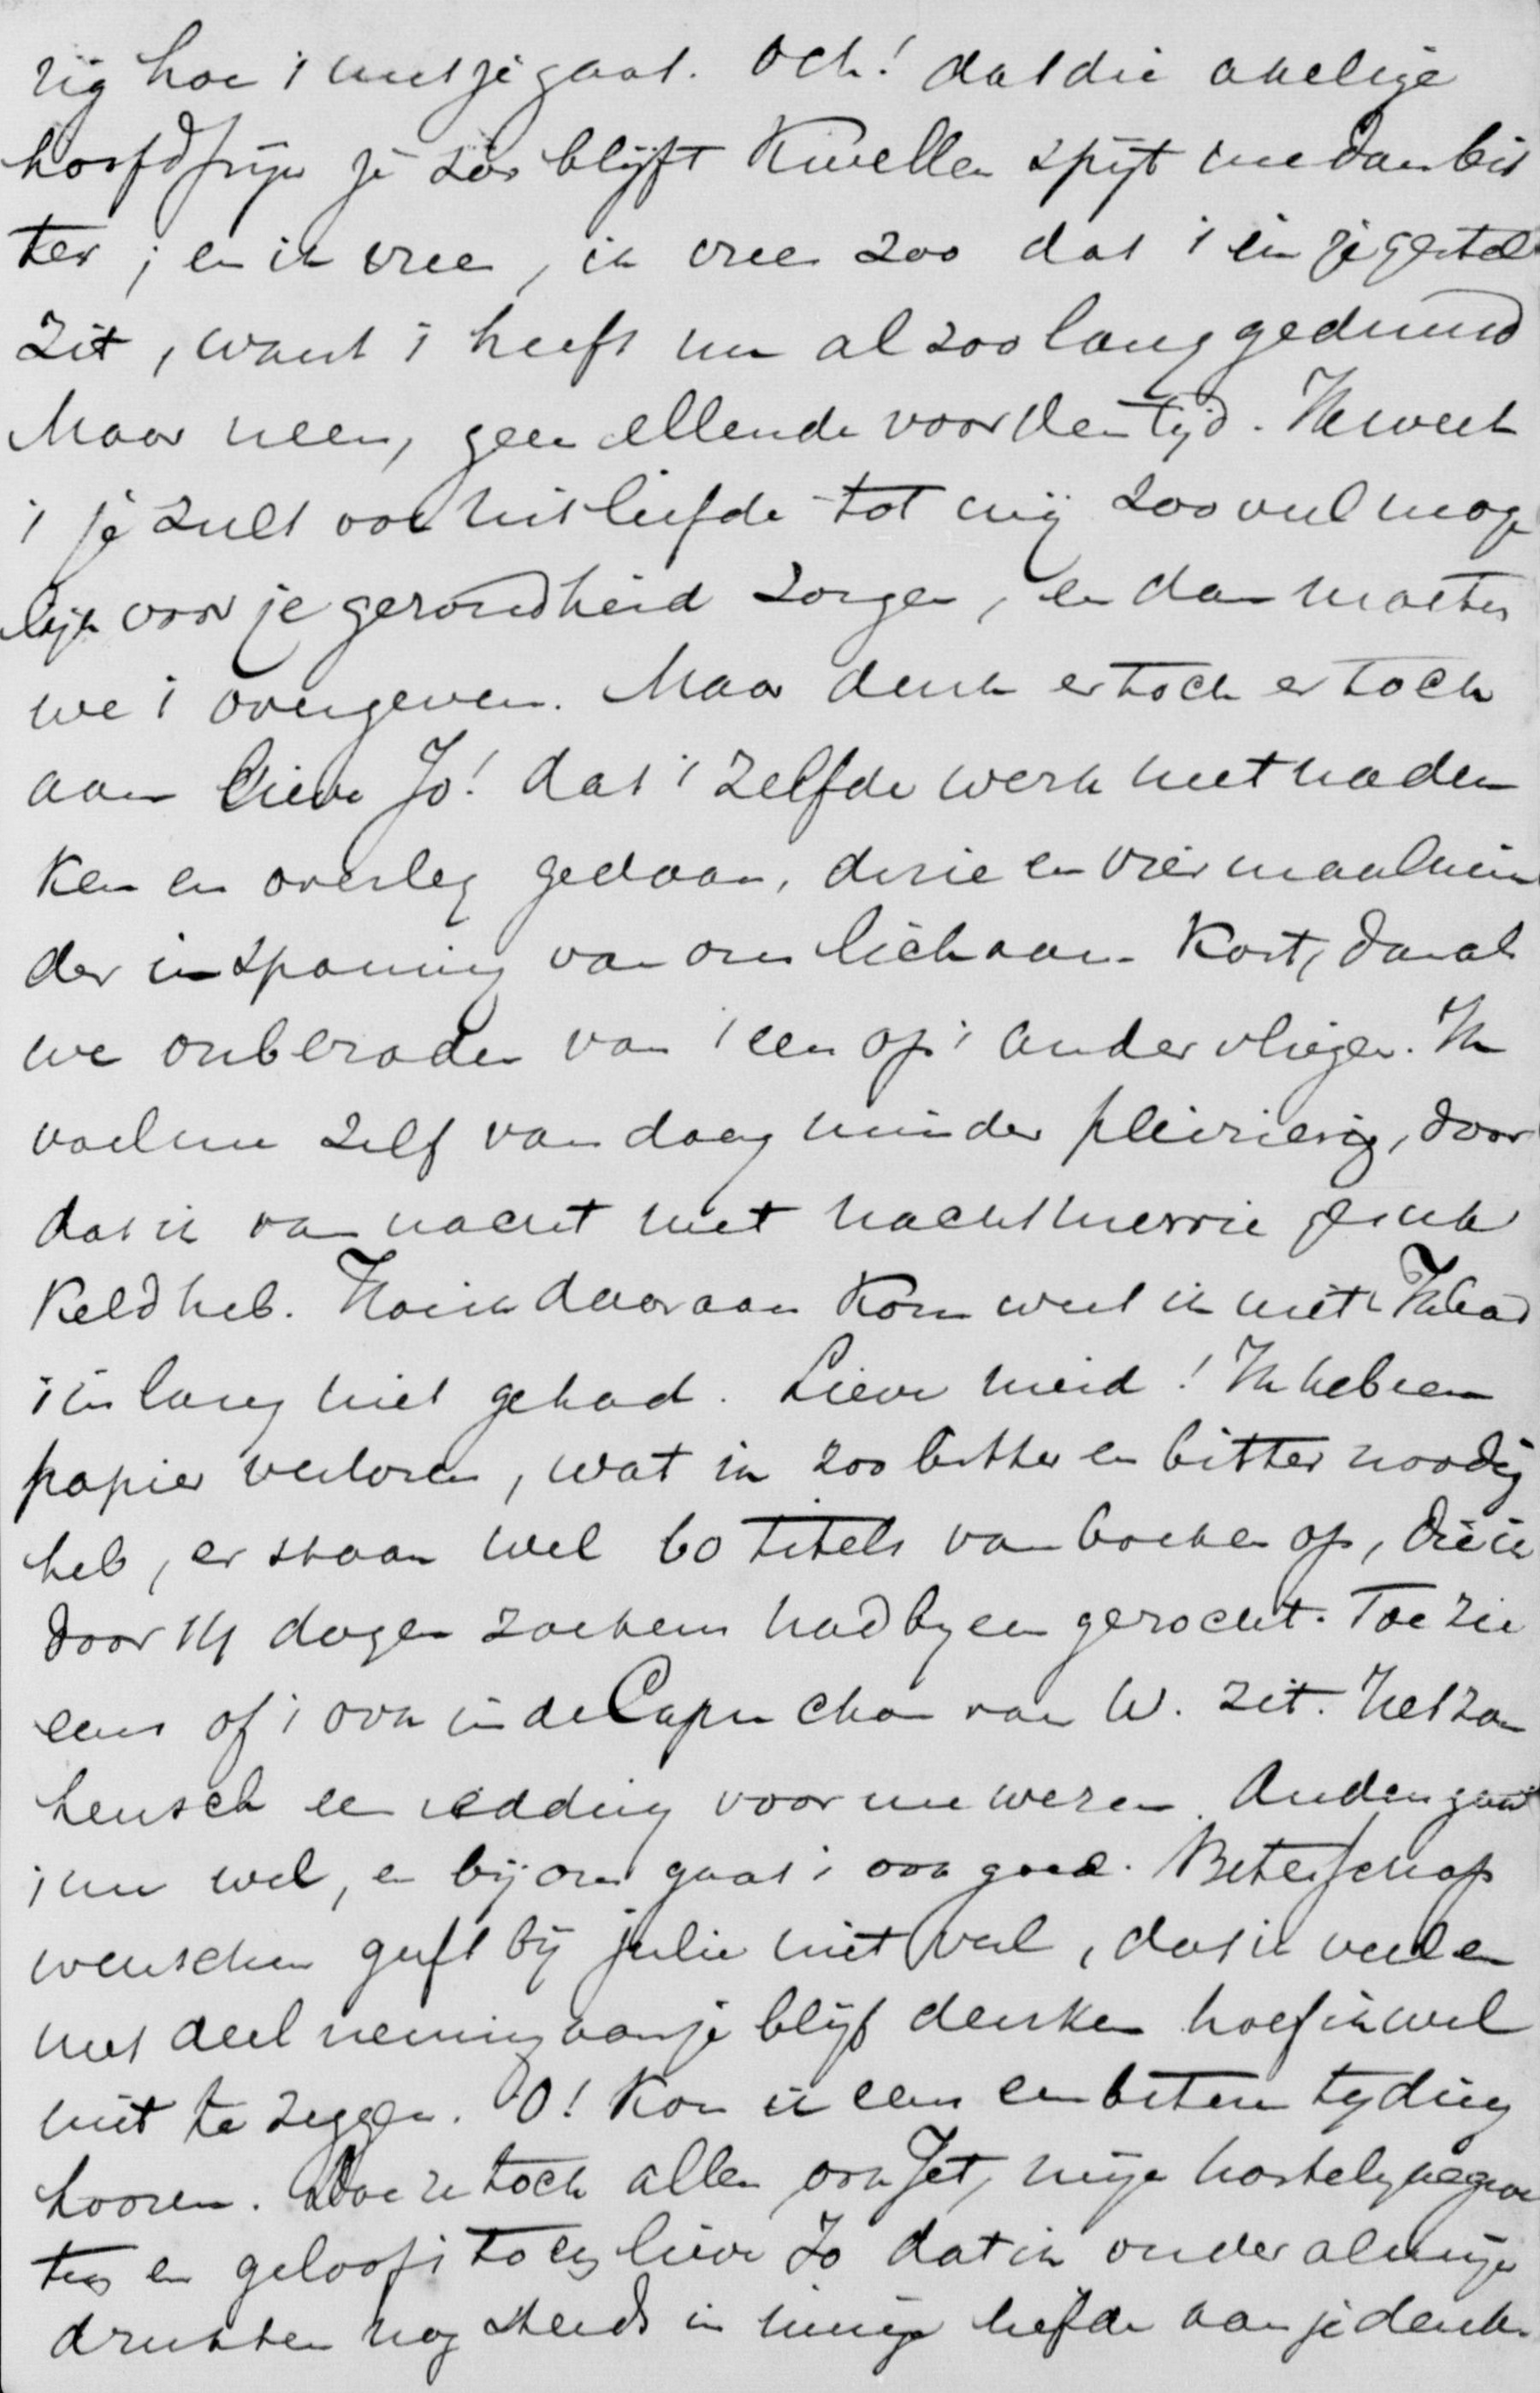 rig hoe 't met je gaat. Och! dat die akelige
hoofdpijn je zóó blijft kwellen spijt me dan bit
ter; en ik vree, ik vree zoo dat 't in je gestel
zit, want 't heeft nu al zoo lang geduurd
Maar neen, geen ellende voor den tijd. Ik weet
't je zult ook uit liefde tot mij zoo veel moge
lijk voor je gezondheid zorgen, en dan moeten
we 't overgeven. Maar denk er toch er toch
aan lieve Jo! dat 't zelfde werk met naden
ken en overleg gedaan, drie en vier maal min
der inspanning van ons lichaam kost, dan als
we onberaden van 't een op 't ander vliegen. Ik
voel me zelf van daag minder pleizierig, door
dat ik van nacht met nachtmerrie gesuk
keld heb. Hoe ik daaraan kom weet ik niet. Ik had
't in lang niet gehad. Lieve meid! Ik heb een
papier verloren, wat ik zoo bitter en bitter noodig
heb, er staan wel 60 titels van boeken op, die ik
door 14 dagen zoekens had byeen gezocht. Toe zie
eens of 't ook in de Capuchon van W. zit. Het zou
heusch een redding voor me wezen. Anders gaat
't me wel, en bij ons gaat 't ook goed. Beterschap
wenschen geeft bij jelie niet veel, dat ik veel en
met deelneming aan je blijf denken hoef ik wel
niet te zeggen. O! Kon ik eens een betere tyding
hooren. Doe ze toch allen, ook Jet, mijn hartelyke groe
ten en geloof 't toch lieve Jo dat ik onder al mijn
drukten nog steeds in innige liefde aan je denk.